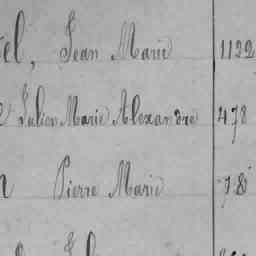 el, Jean Marie 1122
Julien Marie Alexandre 478
Pierre Marie 78